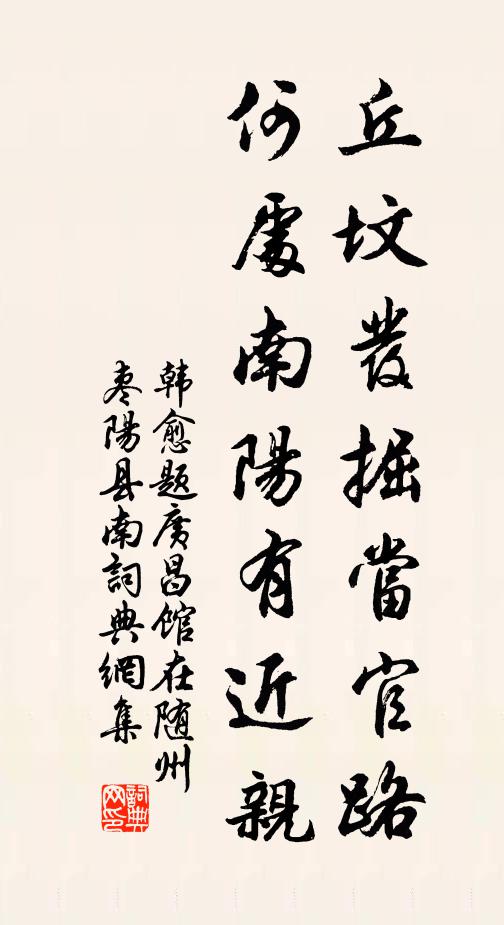 丘墳發掘當官路
何處南陽有近親
韩愈题广昌馆在随州
枣阳县南詞典網集
詞典网印